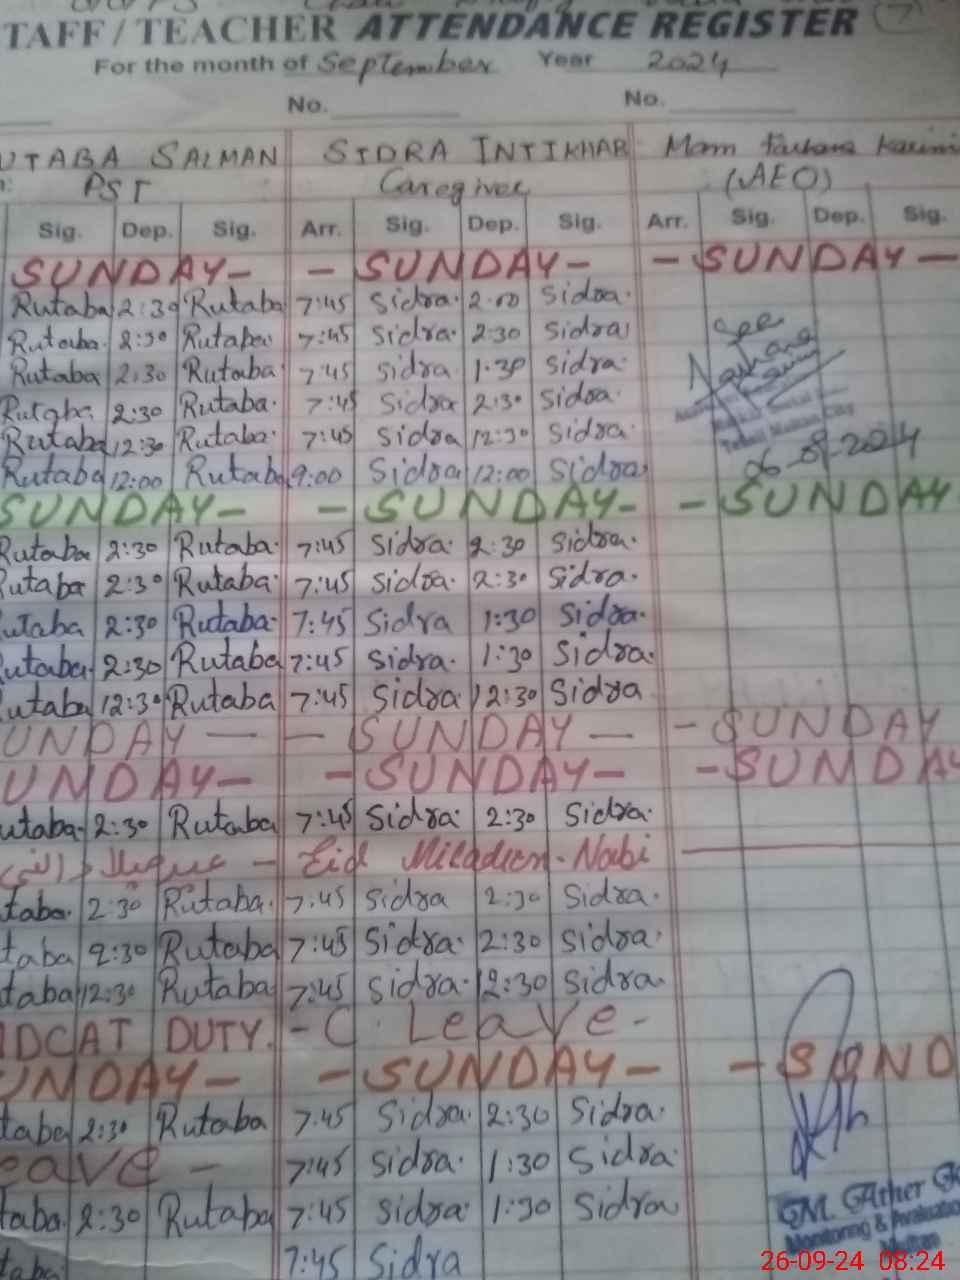 TAFF / TEACHER ATTENDANCE REGISTER 7
For the month of September Year 2024
No. No.
UTABA SALMAN SIDRA INTIKHAB Mam
PST Caregiver (AEO)
Sig. Dep. Sig. Arr. Sig. Dep. Sig. Arr. Sig. Dep. Sig.
SUNDAY- - SUNDAY- - SUNDAY-
Rutaba 2:30 Rutaba 7:45 Sidra. 2:00 Sidra.
Rutaba. 2:30 Rutaba. 7:45 Sidra. 2:30 Sidra
Rutaba 2:30 Rutaba. 7:45 Sidra 1:30 Sidra.
Rutaba. 2:30 Rutaba. 7:45 Sidra 2:30 Sidra.
Rutaba 12:30 Rutaba. 7:45 Sidra 12:30 Sidra.
Rutaba 12:00 Rutaba 9:00 Sidra 12:00 Sidra.
See
Farhana
06-09-2024
SUNDAY- - SUNDAY- - SUNDAY
Rutaba 2:30 Rutaba. 7:45 Sidra. 2:30 Sidra.
utaba 2:30 Rutaba. 7:45 Sidra. 2:30 Sidra.
utaba 2:30 Rutaba. 7:45 Sidra 1:30 Sidra.
utaba. 2:30 Rutaba 7:45 Sidra. 1:30 Sidra.
utaba 12:30 Rutaba 7:45 Sidra 12:30 Sidra
UNDAY - - SUNDAY - - SUNDAY
UNDAY- - SUNDAY- - SUNDAY
utaba. 2:30 Rutaba 7:45 Sidra. 2:30 Sidra.
عید میلاد النبی - Eid Miladun-Nabi
taba. 2:30 Rutaba. 7:45 Sidra 2:30 Sidra.
taba 2:30 Rutaba 7:45 Sidra. 2:30 Sidra.
taba 12:30 Rutaba 7:45 Sidra. 12:30 Sidra.
DCAT DUTY. - C. Leave -
UNDAY- - SUNDAY- - SUND
taba 2:30 Rutaba 7:45 Sidra. 2:30 Sidra.
eave - 7:45 Sidra. 1:30 Sidra.
taba. 2:30 Rutaba 7:45 Sidra. 1:30 Sidra
taba 7:45 Sidra
M. Ather
Monitoring & Evaluation
Multan
26-09-24 08:24